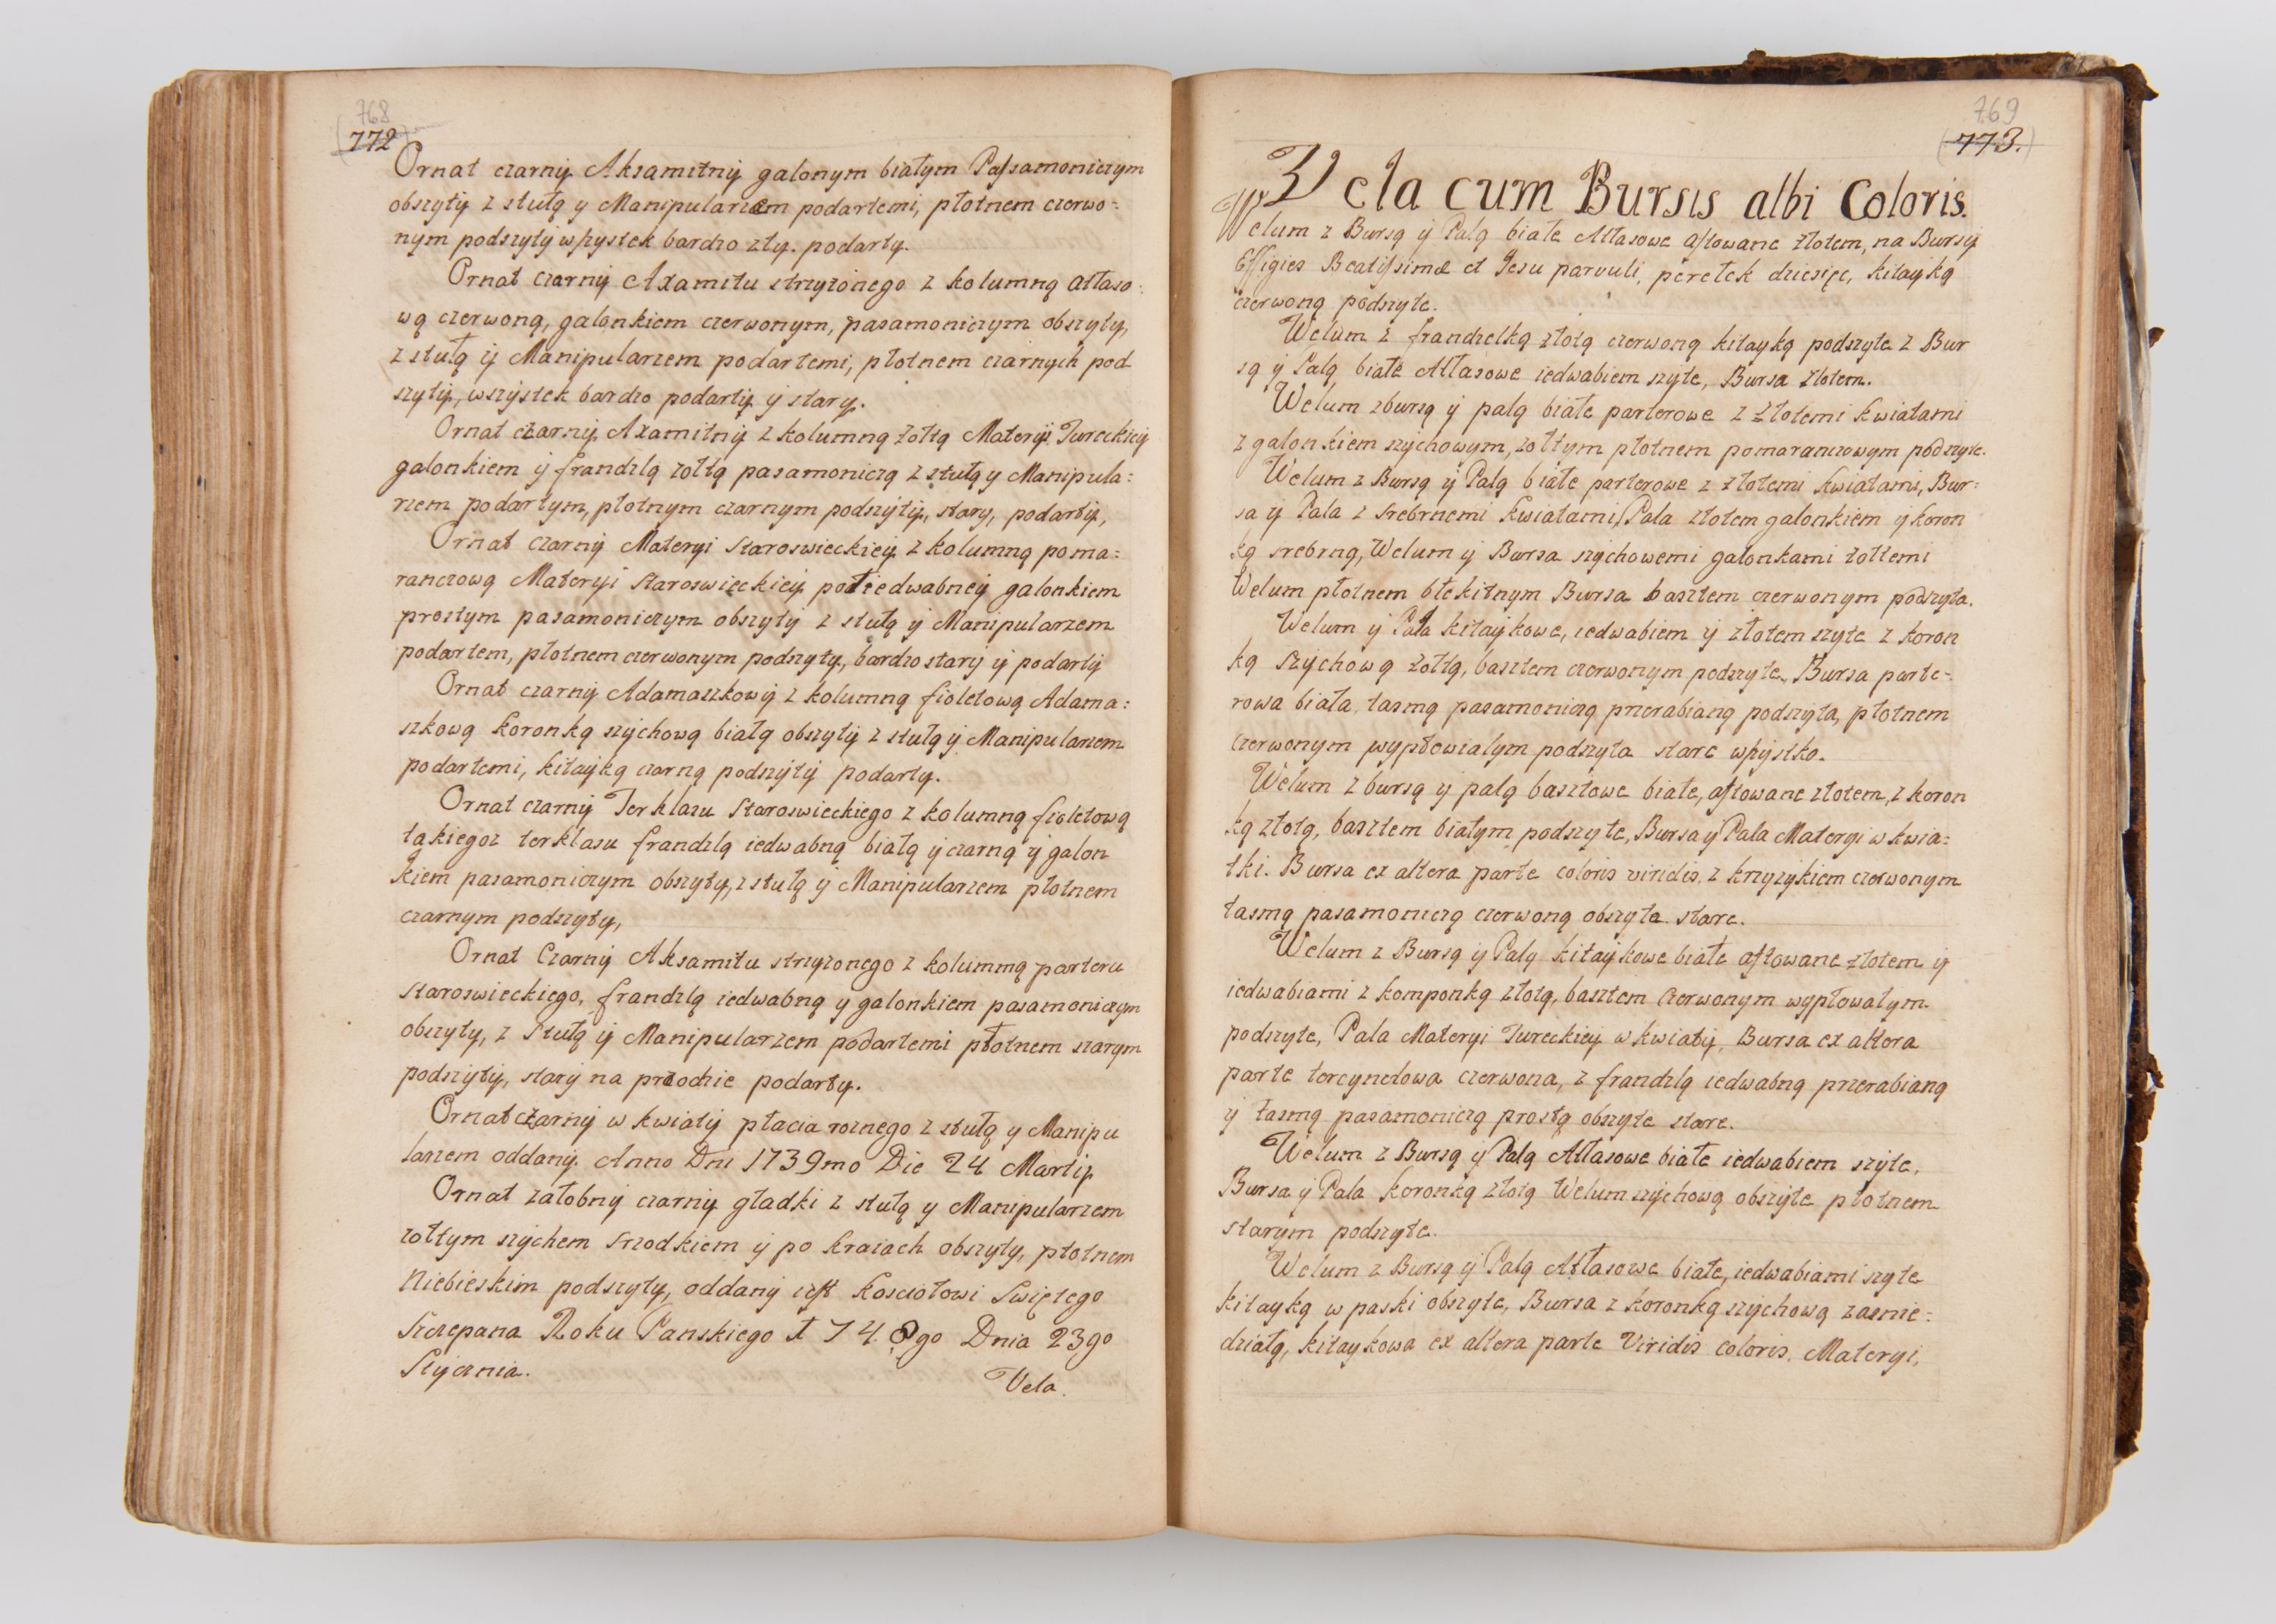 768
772
Ornat czarny Aksamitny galonym białym Passamoniczym
obszyty z stułą y Manipularzem podartemi, płotnem czerwo=
nym podszyty wszystek bardzo zły. podarty.
Ornat czarny Axamitu strzyżonego z kolumną atłaso=
wą czerwoną, galonkiem czerwonym, pasamoniczym obszyty,
z stułą ÿ Manipularzem podartemi, płotnem czarnych pod
szyty, wszystek bardzo podarty ÿ stary.
Ornat czarny Axamitny z kolumną żołtą Materyi Tureckiey
galonkiem ÿ frandzlą zołtą pasamoniczą z stułą y Manipula=
rzem podartym, płotnym czarnym podszyty, stary, podarty,
Ornat czarny Materyi Staroswieckiey z kolumną poma=
ranczową Materyi Staroswieckiey połiedwabney galonkiem
prostym pasamoniczym obszyty z stułą ÿ Manipularzem
podartem, płotnem czerwonym podszyty, bardzo stary ÿ podarty
Ornat czarny Adamaszkowy z kolumną fioletową Adama=
szkową koronką szychową białą obszyty z stułą ÿ Manipularzem
podartemi, kitayką czarną podszyty podarty.
Ornat czarny Terklasu Staroswieckiego z kolumną fioletową
takiegoz terklasu frandzlą iedwabną białą ÿ czarną ÿ galon
kiem pasamoniczym obszyty, z stułą ÿ Manipularzem płotnem
czarnym podszyty,
Ornat Czarny Aksamitu strzyzonego z kolumną parteru
staroswieckiego, frandzlą iedwabną y galonkiem pasamoniczym
obszyty, z Stułą ÿ Manipularzem podartemi płotnem szarym
podszyty, stary na przodzie podarty.
Ornat czarny w kwiaty płacia roznego z stułą y Manipu
larzem oddany. Anno Dni 1739mo Die 24 Martij
Ornat załobny czarny gładki z stułą y Manipularzem
zołtym szychem srzodkiem ÿ po kraiach obszyty, płotnem
Niebieskim podszyty, oddany iest Kosciołowi Swiętego
Szczepana Roku Panskiego 1748go Dnia 23go
Stycznia.
Vela.
769
773.
Vela cum Bursis albi Coloris.
Welum z Bursą ÿ Palą białe Atłasowe aftowane złotem, na Bursy
Effigies Beatissimæ et Jesu parvuli, perełek dziesięc, kitayką
czerwoną podszyte.
Welum z frandzelką złotą czerwoną kitayką podszyte z Bur
są ÿ Palą białe Atłasowe iedwabiem szyte, Bursa złotem.
Welum z bursą ÿ palą białe parterowe z złotemi kwiatami
z galonkiem szychowym, zołtym płotnem pomaranczowym podszyte.
Welum z Bursą ÿ Palą białe parterowe z złotemi kwiatami, Bur=
sa ÿ Pala z srebrnemi kwiatami, Pala złotem galonkiem ÿ koron
ką srebrną, Welum ÿ Bursa szychowemi galonkami zołtemi
Welum płotnem błekitnym Bursa basztem czerwonym podszyta.
Welum ÿ Pala kitaykowe, iedwabiem ÿ złotem szyte z koron
ką szychową żołtą, basztem czerwonym podszyte, Bursa parte=
rowa biała, tasmą pasamoniczą przerabianą podszyta, płotnem
czerwonym wypłowiałym podszyta stare wszystko.
Welum z bursą ÿ palą basztowe białe, aftowane złotem, z koron
ką złotą, basztem białym podszyte, Bursa ÿ Pala Materyi w kwia=
tki. Bursa ex altera parte coloris viridis, z krzyżykiem czerwonym
tasmą pasamoniczą czerwoną obszyta stare.
Welum z Bursą ÿ Palą kitaykowe białe aftowane złotem ÿ
iedwabiami z komponką złotą, basztem czerwonym wypłowałym
podszyte, Pala Materyi Tureckiey w kwiaty, Bursa ex altera
parte tercynelowa czerwona, z frandzlą iedwabną przerabianą
ÿ tasmą pasamoniczą prostą obszyte stare.
Welum z Bursą ÿ Palą Atłasowe białe iedwabiem szyte,
Bursa ÿ Pala koronką złotą Welum szychową obszyte płotnem
starym podszyte.
Welum z Bursą ÿ Palą Atłasowe białe, iedwabiami szyte
kitayką w paski obszyte, Bursa z koronką szychową zasnie=
działą, kitaykowa ex altera parte Viridis coloris. Materyi,